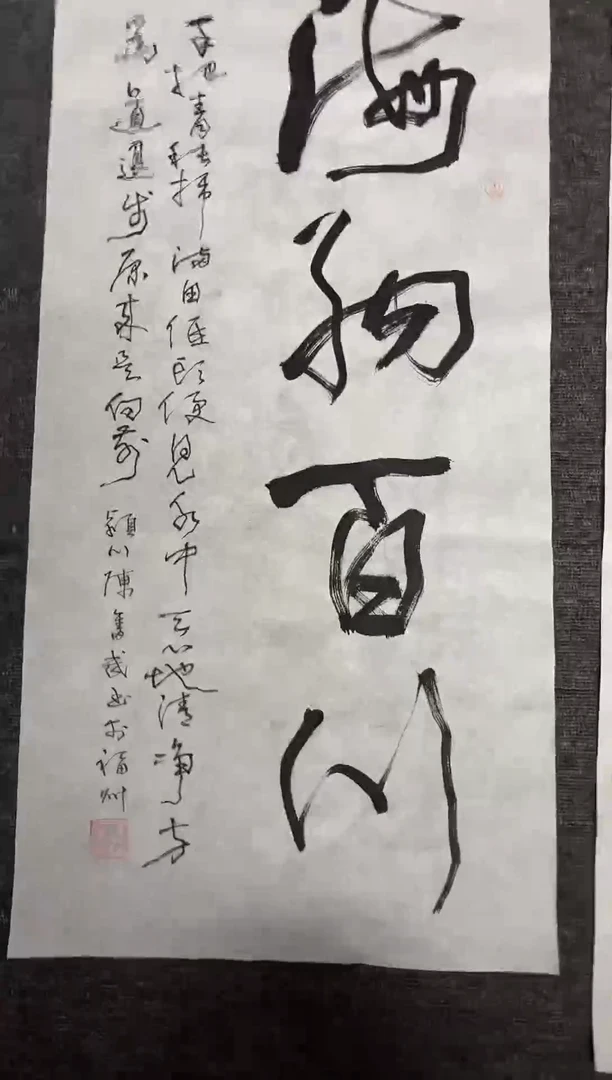 海納百川
手把青秧插满田低头便見水中天心地清净方
為道退步原来是向前 穎川陳奮武书於福州